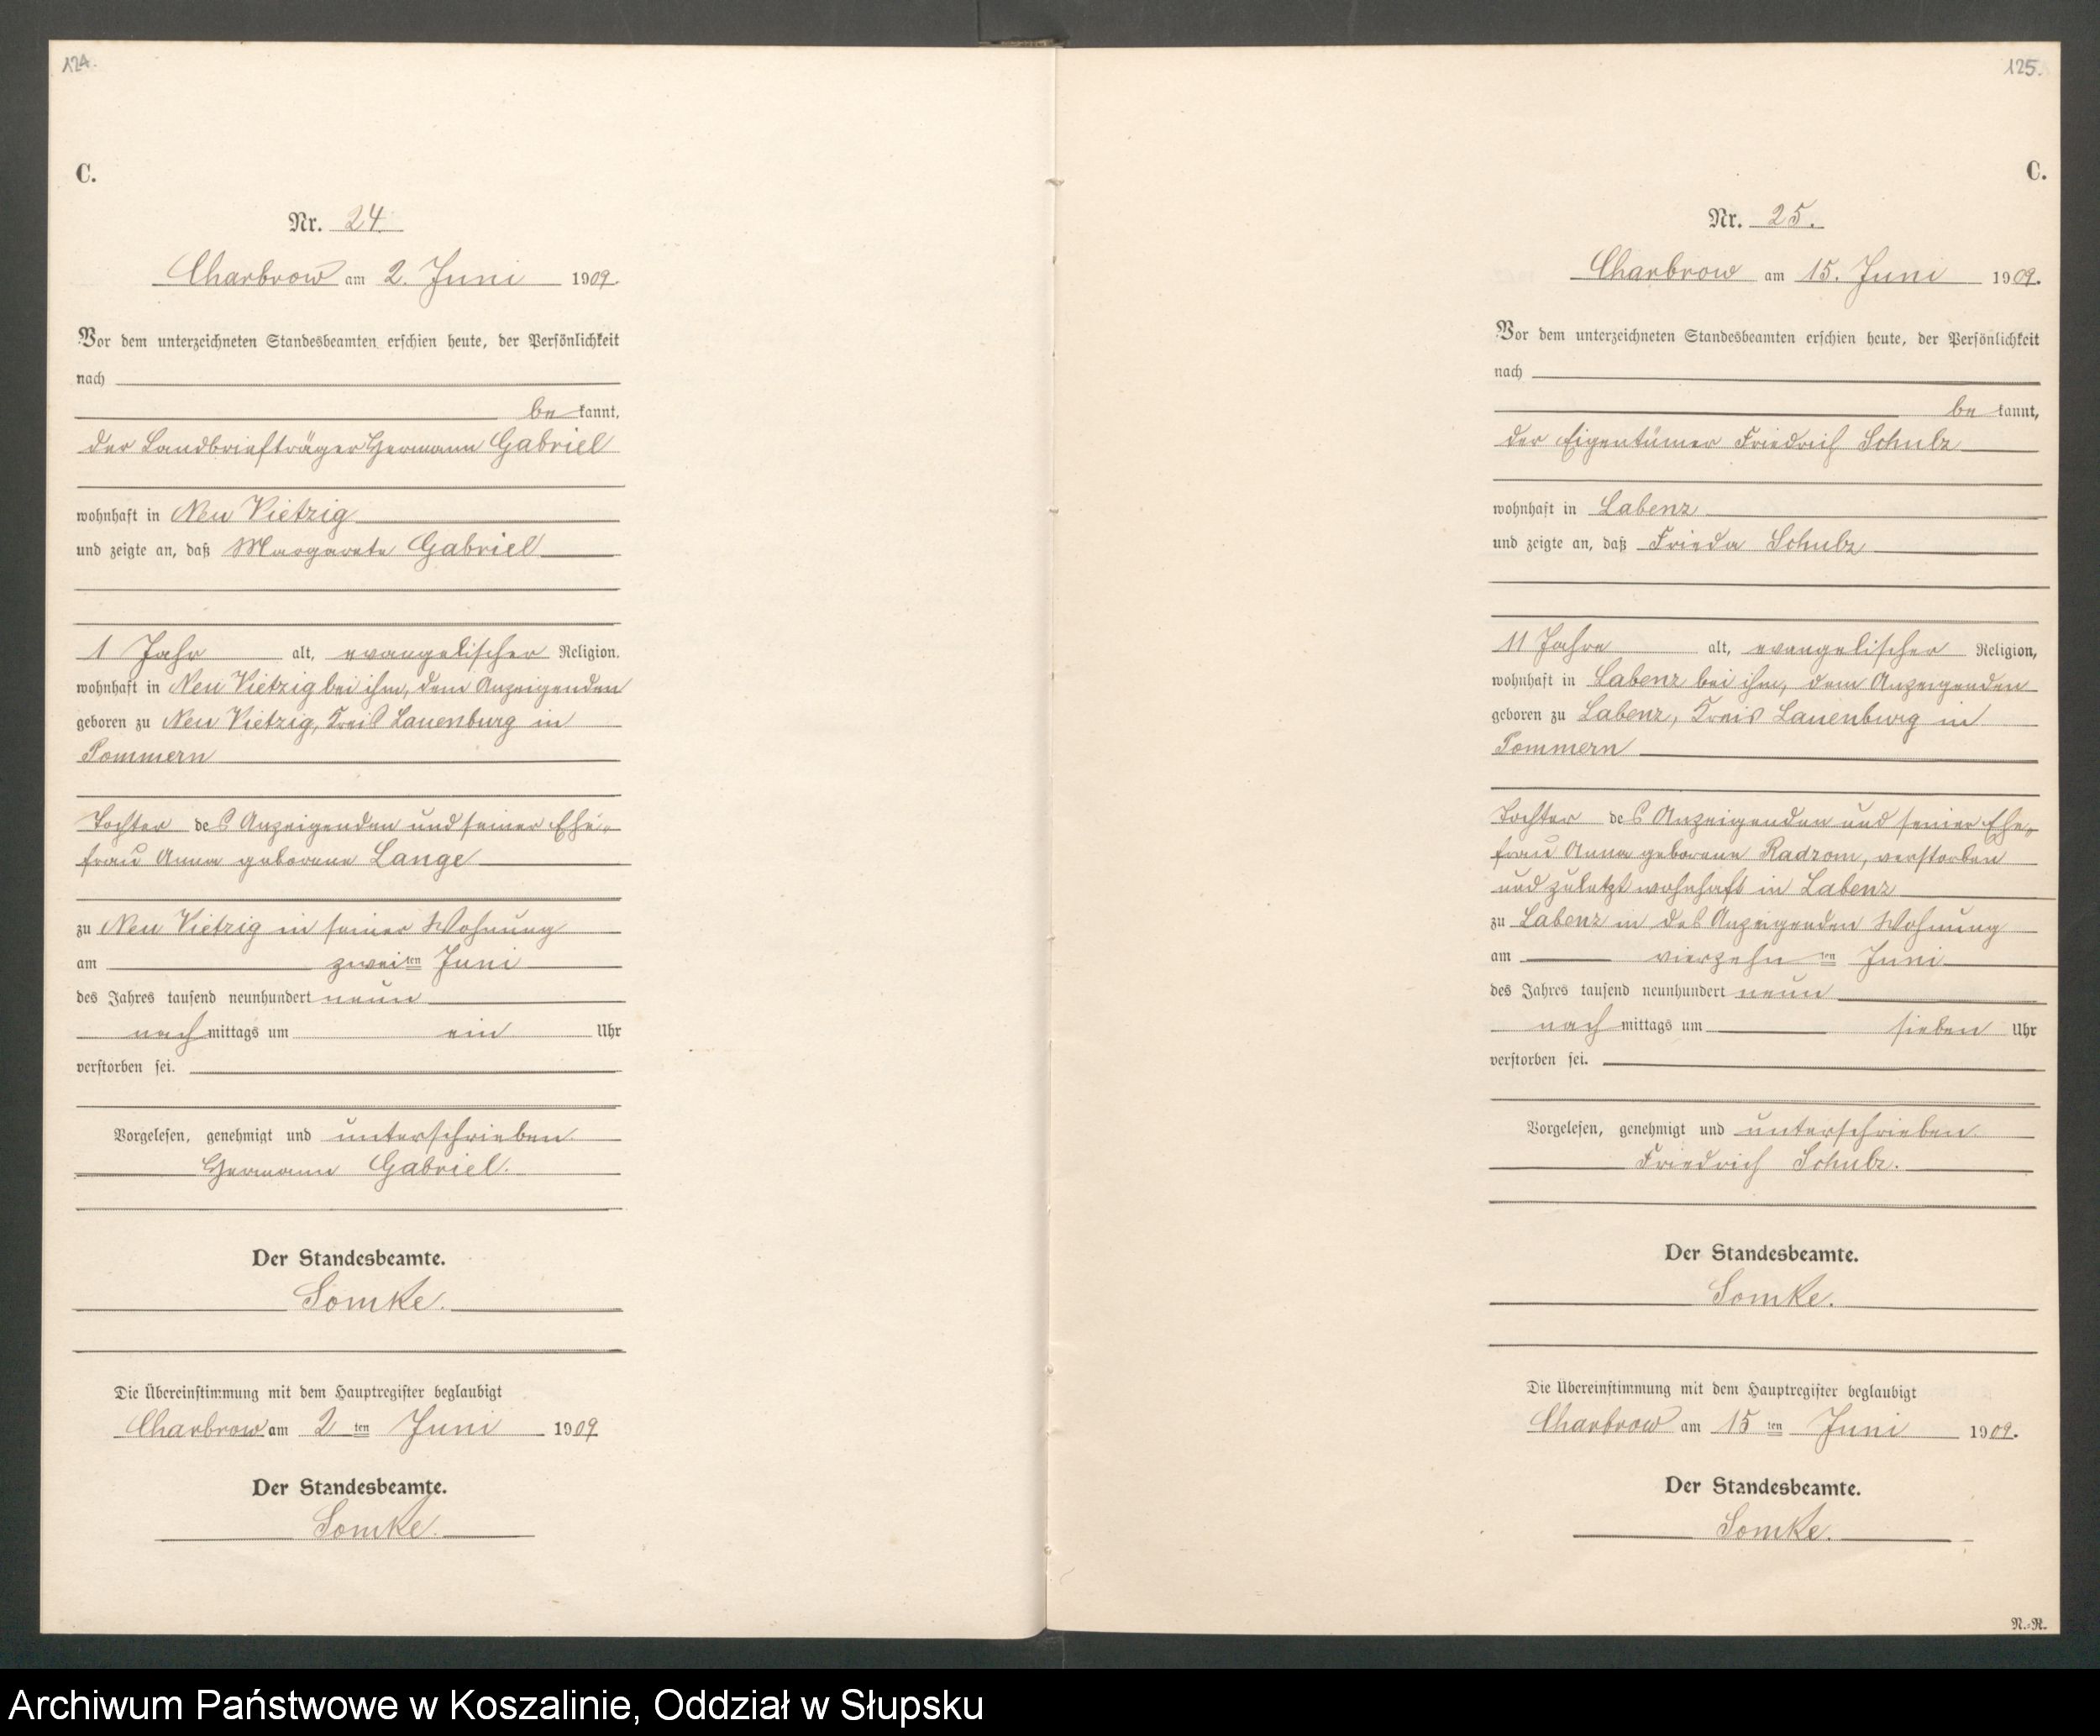 124.
C.
Nr. 24.
Charbrow am 2. Juni 1909.
Vor dem unterzeichneten Standesbeamten erschien heute, der Persönlichkeit
nach
be kannt,
der Landbriefträger Hermann Gabriel
wohnhaft in Neu Vietzig
und zeigte an, daß Margarete Gabriel
1 Jahr alt, evangelischer Religion,
wohnhaft in Neu Vietzig bei ihm, dem Anzeigenden
geboren zu Neu Vietzig, Kreis Lauenburg in
Pommern
Tochter des Anzeigenden und seiner Ehe-
frau Anna geborene Lange
zu Neu Vietzig in seiner Wohnung
am zweiten Juni
des Jahres tausend neunhundert neun
nach mittags um ein Uhr
verstorben sei.
Vorgelesen, genehmigt und unterschrieben.
Hermann Gabriel.
Der Standesbeamte.
Somke.
Die Übereinstimmung mit dem Hauptregister beglaubigt
Charbrow am 2 ten Juni 1909
Der Standesbeamte.
Somke.
125.
C.
Nr. 25.
Charbrow am 15. Juni 1909.
Vor dem unterzeichneten Standesbeamten erschien heute, der Persönlichkeit
nach
be kannt,
der Eigentümer Friedrich Schulz
wohnhaft in Labenz
und zeigte an, daß Frieda Schulz
11 Jahre alt, evangelischer Religion,
wohnhaft in Labenz bei ihm, dem Anzeigenden
geboren zu Labenz, Kreis Lauenburg in
Pommern
Tochter des Anzeigenden und seiner Ehe-
frau Anna geborene Radzom, verstorben
und zuletzt wohnhaft in Labenz
zu Labenz in des Anzeigenden Wohnung
am vierzehn ten Juni
des Jahres tausend neunhundert neun
nach mittags um sieben Uhr
verstorben sei.
Vorgelesen, genehmigt und unterschrieben.
Friedrich Schulz.
Der Standesbeamte.
Somke.
Die Übereinstimmung mit dem Hauptregister beglaubigt
Charbrow am 15 ten Juni 1909.
Der Standesbeamte.
Somke.
N.-R.
Archiwum Państwowe w Koszalinie, Oddział w Słupsku